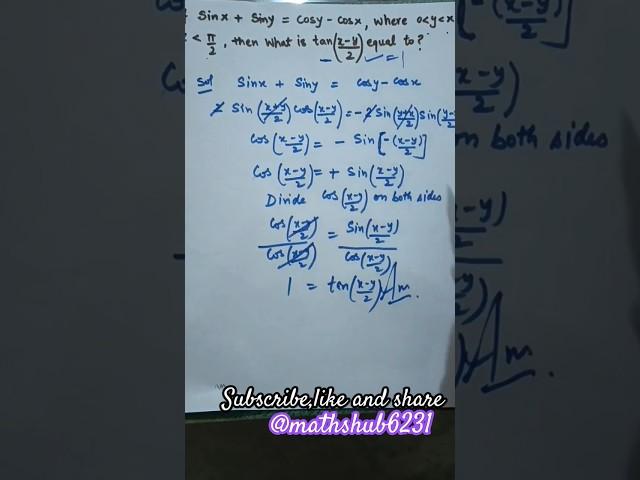 Sinx + Siny = Cosy - Cosx, where 0<y<x
< π/2, then what is tan((x-y)/2) equal to? = 1
Sol Sinx + Siny = Cosy - Cosx
2 Sin((x+y)/2) Cos((x-y)/2) = -2 Sin((y+x)/2) Sin((y-x)/2)
Cos((x-y)/2) = - Sin[-((x-y)/2)]
Cos((x-y)/2) = + Sin((x-y)/2)
Divide Cos((x-y)/2) on both sides
Cos((x-y)/2)/Cos((x-y)/2) = Sin((x-y)/2)/Cos((x-y)/2)
1 = tan((x-y)/2)
Subscribe,like and share
@mathshub6231